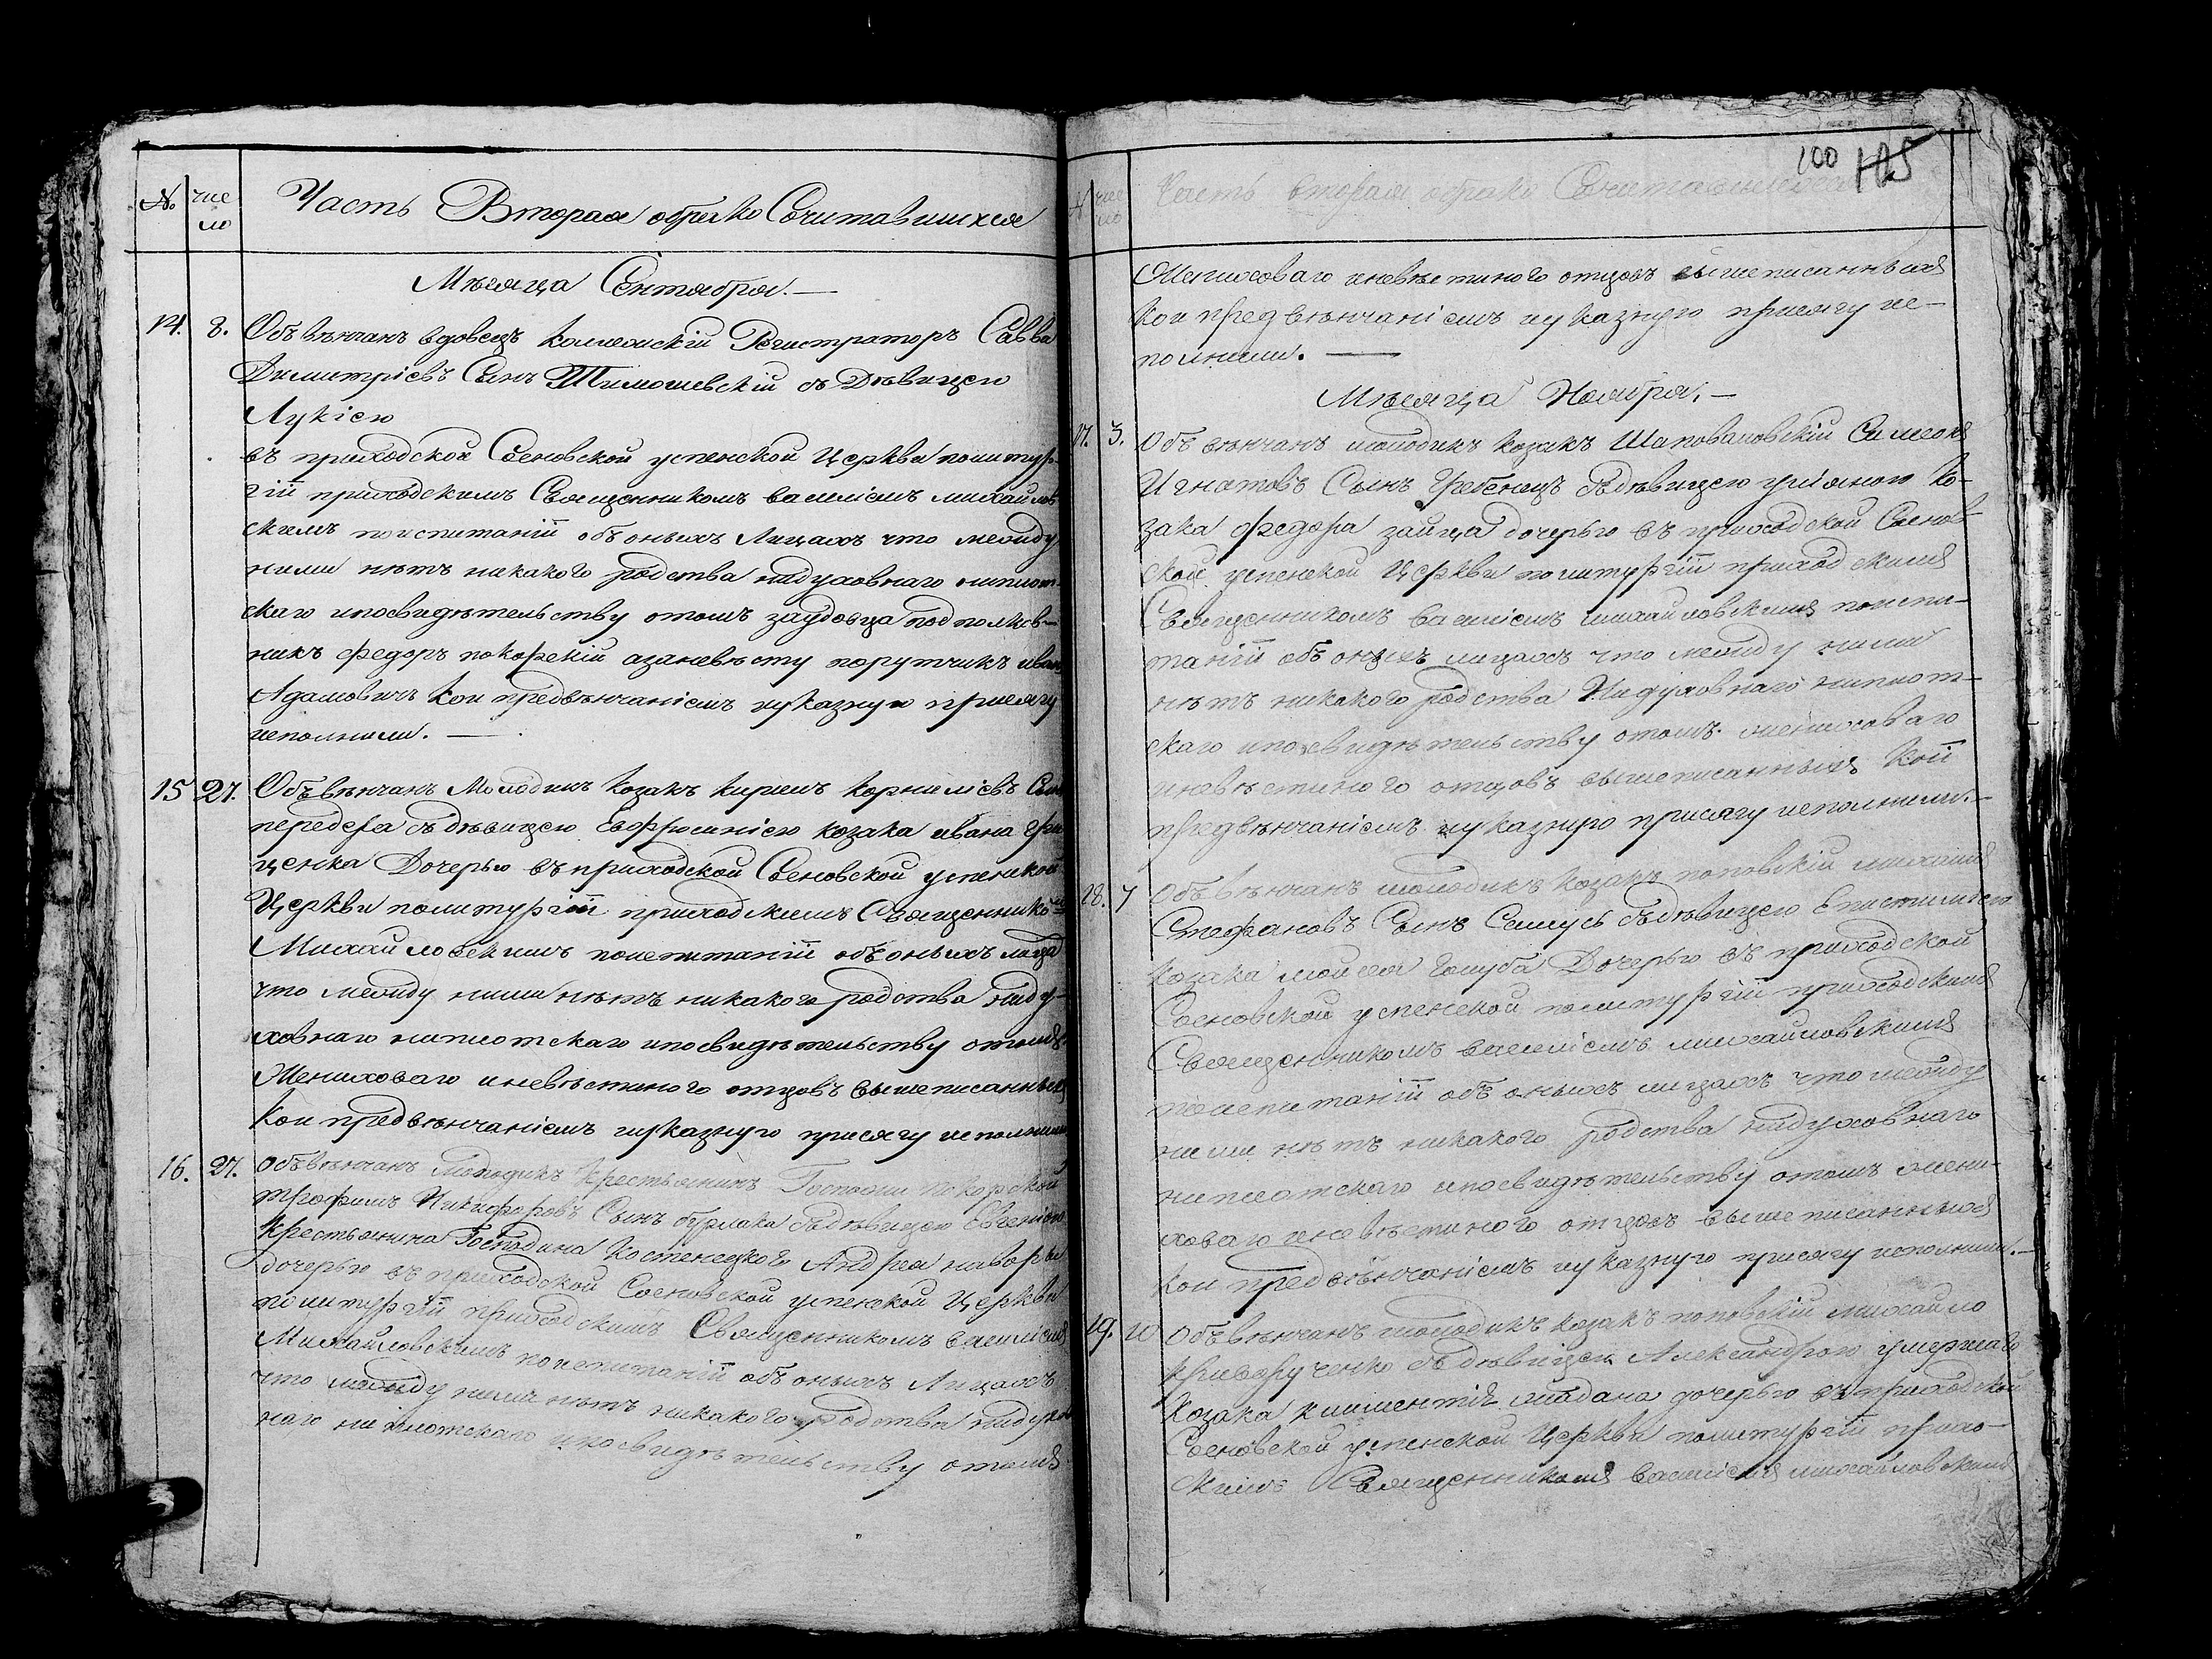 № чис
ло
Часть Вторая обрако Сочитавшихся
Мѣсяца Сентября. —
14. 8. Объвѣнчанъ вдовецъ коллежскій Регистраторъ Савва
Димитріевъ Сынъ Тимошевскій съ Дѣвицею
Лукією
въ приходской Сосновской успенской Церкви политур-
гіи приходскимъ Священникомъ василіемъ михайлов
скимъ поиспитаніи объ оныхъ Лицахъ что между
ними нѣтъ никакого родства нидуховнаго ниплот-
скаго ипосвидѣтельству отомъ заудовца подполков-
никъ федоръ покорскій азаневѣсту порутчикъ иванъ
Адамовичъ кои предвѣнчаніемъ иуказную присягу
исполнили. —
15 27. Объвѣнчанъ Молодикъ козакъ кирилъ корниліевъ Сынъ
передера съдѣвицею Евфросинією козака ивана гри
ценка Дочерью въ приходской Сосновской успенской
Церкви политургіи приходскимъ Священникомъ
Михайловскимъ поиспитаніи объ оныхъ лица
что между ними нѣтъ никакого родства ниду-
ховнаго ниплотскаго ипосвидѣтельству отомъ
Жениховаго иневѣстиного отцовъ вышеписанныхъ
кои предвѣнчаніемъ иуказную присягу исполнили
16. 27. Объвѣнчанъ Молодикъ Крестьянинъ Госпожи покорской
трофимъ Никифоровъ Сынъ бурлака съдѣвицею Евгенією
Крестьянина Господина Костенецкого Андрея
дочерью въ приходской Сосновской успенской Церкви
политургіи приходскимъ Священникомъ василіемъ
Михайловскимъ поиспитаніи объ оныхъ Лицахъ
что между ними нѣтъ никакого родства нидухов
наго ниплотскаго ипосвидѣтельству отомъ
100 105
№ чис
ло
Часть вторая обрако Сочитавшихся
Жениховаго иневѣстиного отцовъ вышеписанныхъ
кои предвѣнчаніемъ иуказную присягу ис-
полнили. —
Мѣсяца Ноября. —
17. 3. Объвѣнчанъ молодикъ козакъ Шаповаловскій Симеонъ
Игнатовъ Сынъ Гребенецъ съдѣвицею ко-
зака федора зайца дочерью въ приходской Соснов
ской успенской Церкви политургіи приходскимъ
Священникомъ василіемъ михайловскимъ поиспи-
таніи объ оныхъ лицахъ что между ними
нѣтъ никакого родства Нидуховнаго ниплот-
скаго ипосвидѣтельству отомъ жениховаго
иневѣстиного отцовъ вышеписанныхъ кои
предвѣнчаніемъ иуказную присягу исполнили. —
18. 7 Объвѣнчанъ молодикъ козакъ поповскій михаилъ
Стефановъ Сынъ Самусь съдѣвицею Епистимією
козака мойсея голуба Дочерью въ приходской
Сосновской успенской политургіи приходскимъ
Священникомъ василіемъ михайловскимъ
поиспитаніи объ оныхъ лицахъ что между
ними нѣтъ никакого родства нидуховнаго
ниплотскаго ипосвидѣтельству отомъ жени-
ховаго иневѣстиного отцовъ вышеписанныхъ
кои предвѣнчаніемъ иуказную присягу исполнили. —
19. 10 Объвѣнчанъ молодикъ козакъ поповскій михайло
криворученко съдѣвицею Александрою умершаго
козака климентія дочерью въ приходской
Сосновской успенской Церкви политургіи прихо-
скимъ Священникомъ василіемъ михайловскимъ